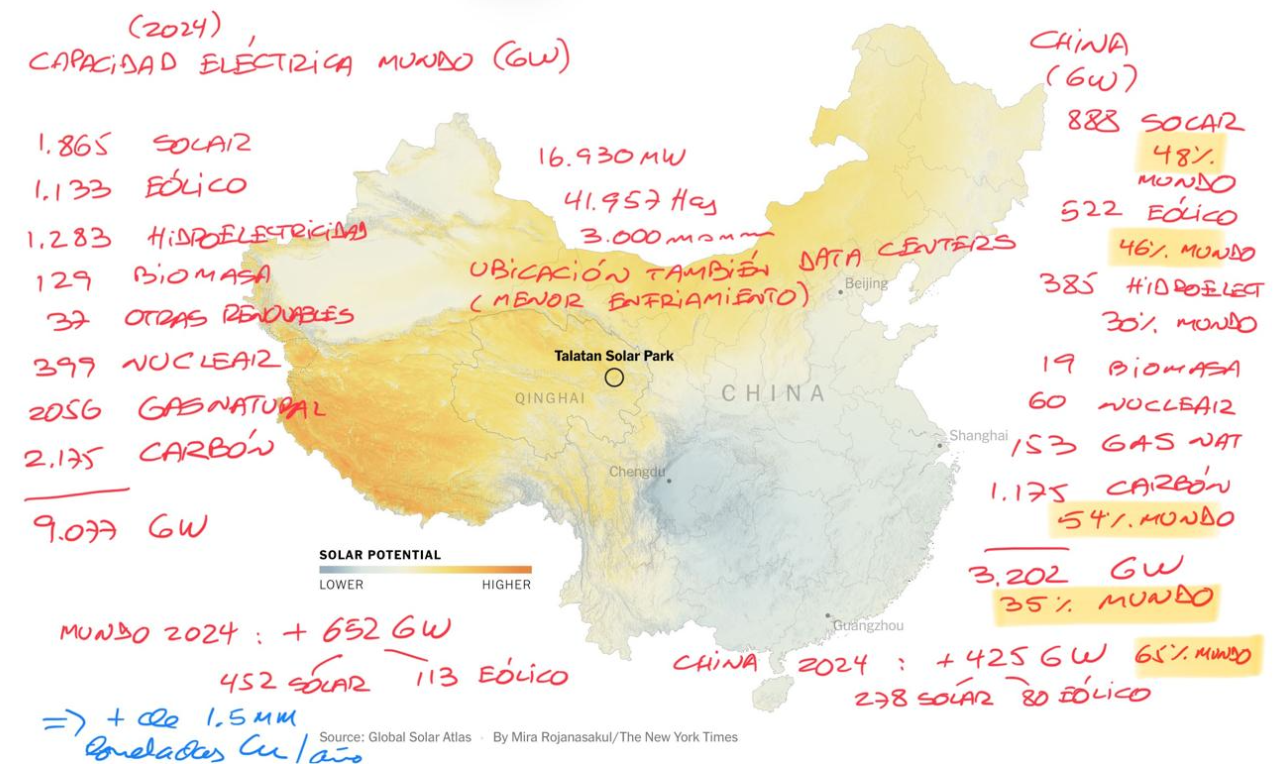 (2024)
CAPACIDAD ELÉCTRICA MUNDO (GW)
1.865 SOLAR
1.133 EÓLICO
1.283 HIDROELECTRICIDAD
129 BIOMASA
37 OTRAS RENOVABLES
399 NUCLEAR
2056 GAS NATURAL
2.175 CARBÓN
9.077 GW
16.930 MW
41.957 Has
3.000 msnm
UBICACIÓN TAMBIÉN DATA CENTERS
(MENOR ENFRIAMIENTO)
Beijing
Talatan Solar Park
QINGHAI
CHINA
Shanghai
Chengdu
Guangzhou
SOLAR POTENTIAL
LOWER HIGHER
CHINA
(GW)
888 SOLAR
48%
MUNDO
522 EÓLICO
46% MUNDO
385 HIDROELECT
30% MUNDO
19 BIOMASA
60 NUCLEAR
153 GAS NAT
1.175 CARBÓN
54% MUNDO
3.202 GW
35% MUNDO
MUNDO 2024 : + 652 GW
452 SOLAR 113 EÓLICO
CHINA 2024 : +425 GW 65% MUNDO
278 SOLAR 80 EÓLICO
=> + de 1.5 MM
toneladas Cu/año
Source: Global Solar Atlas · By Mira Rojanasakul/The New York Times